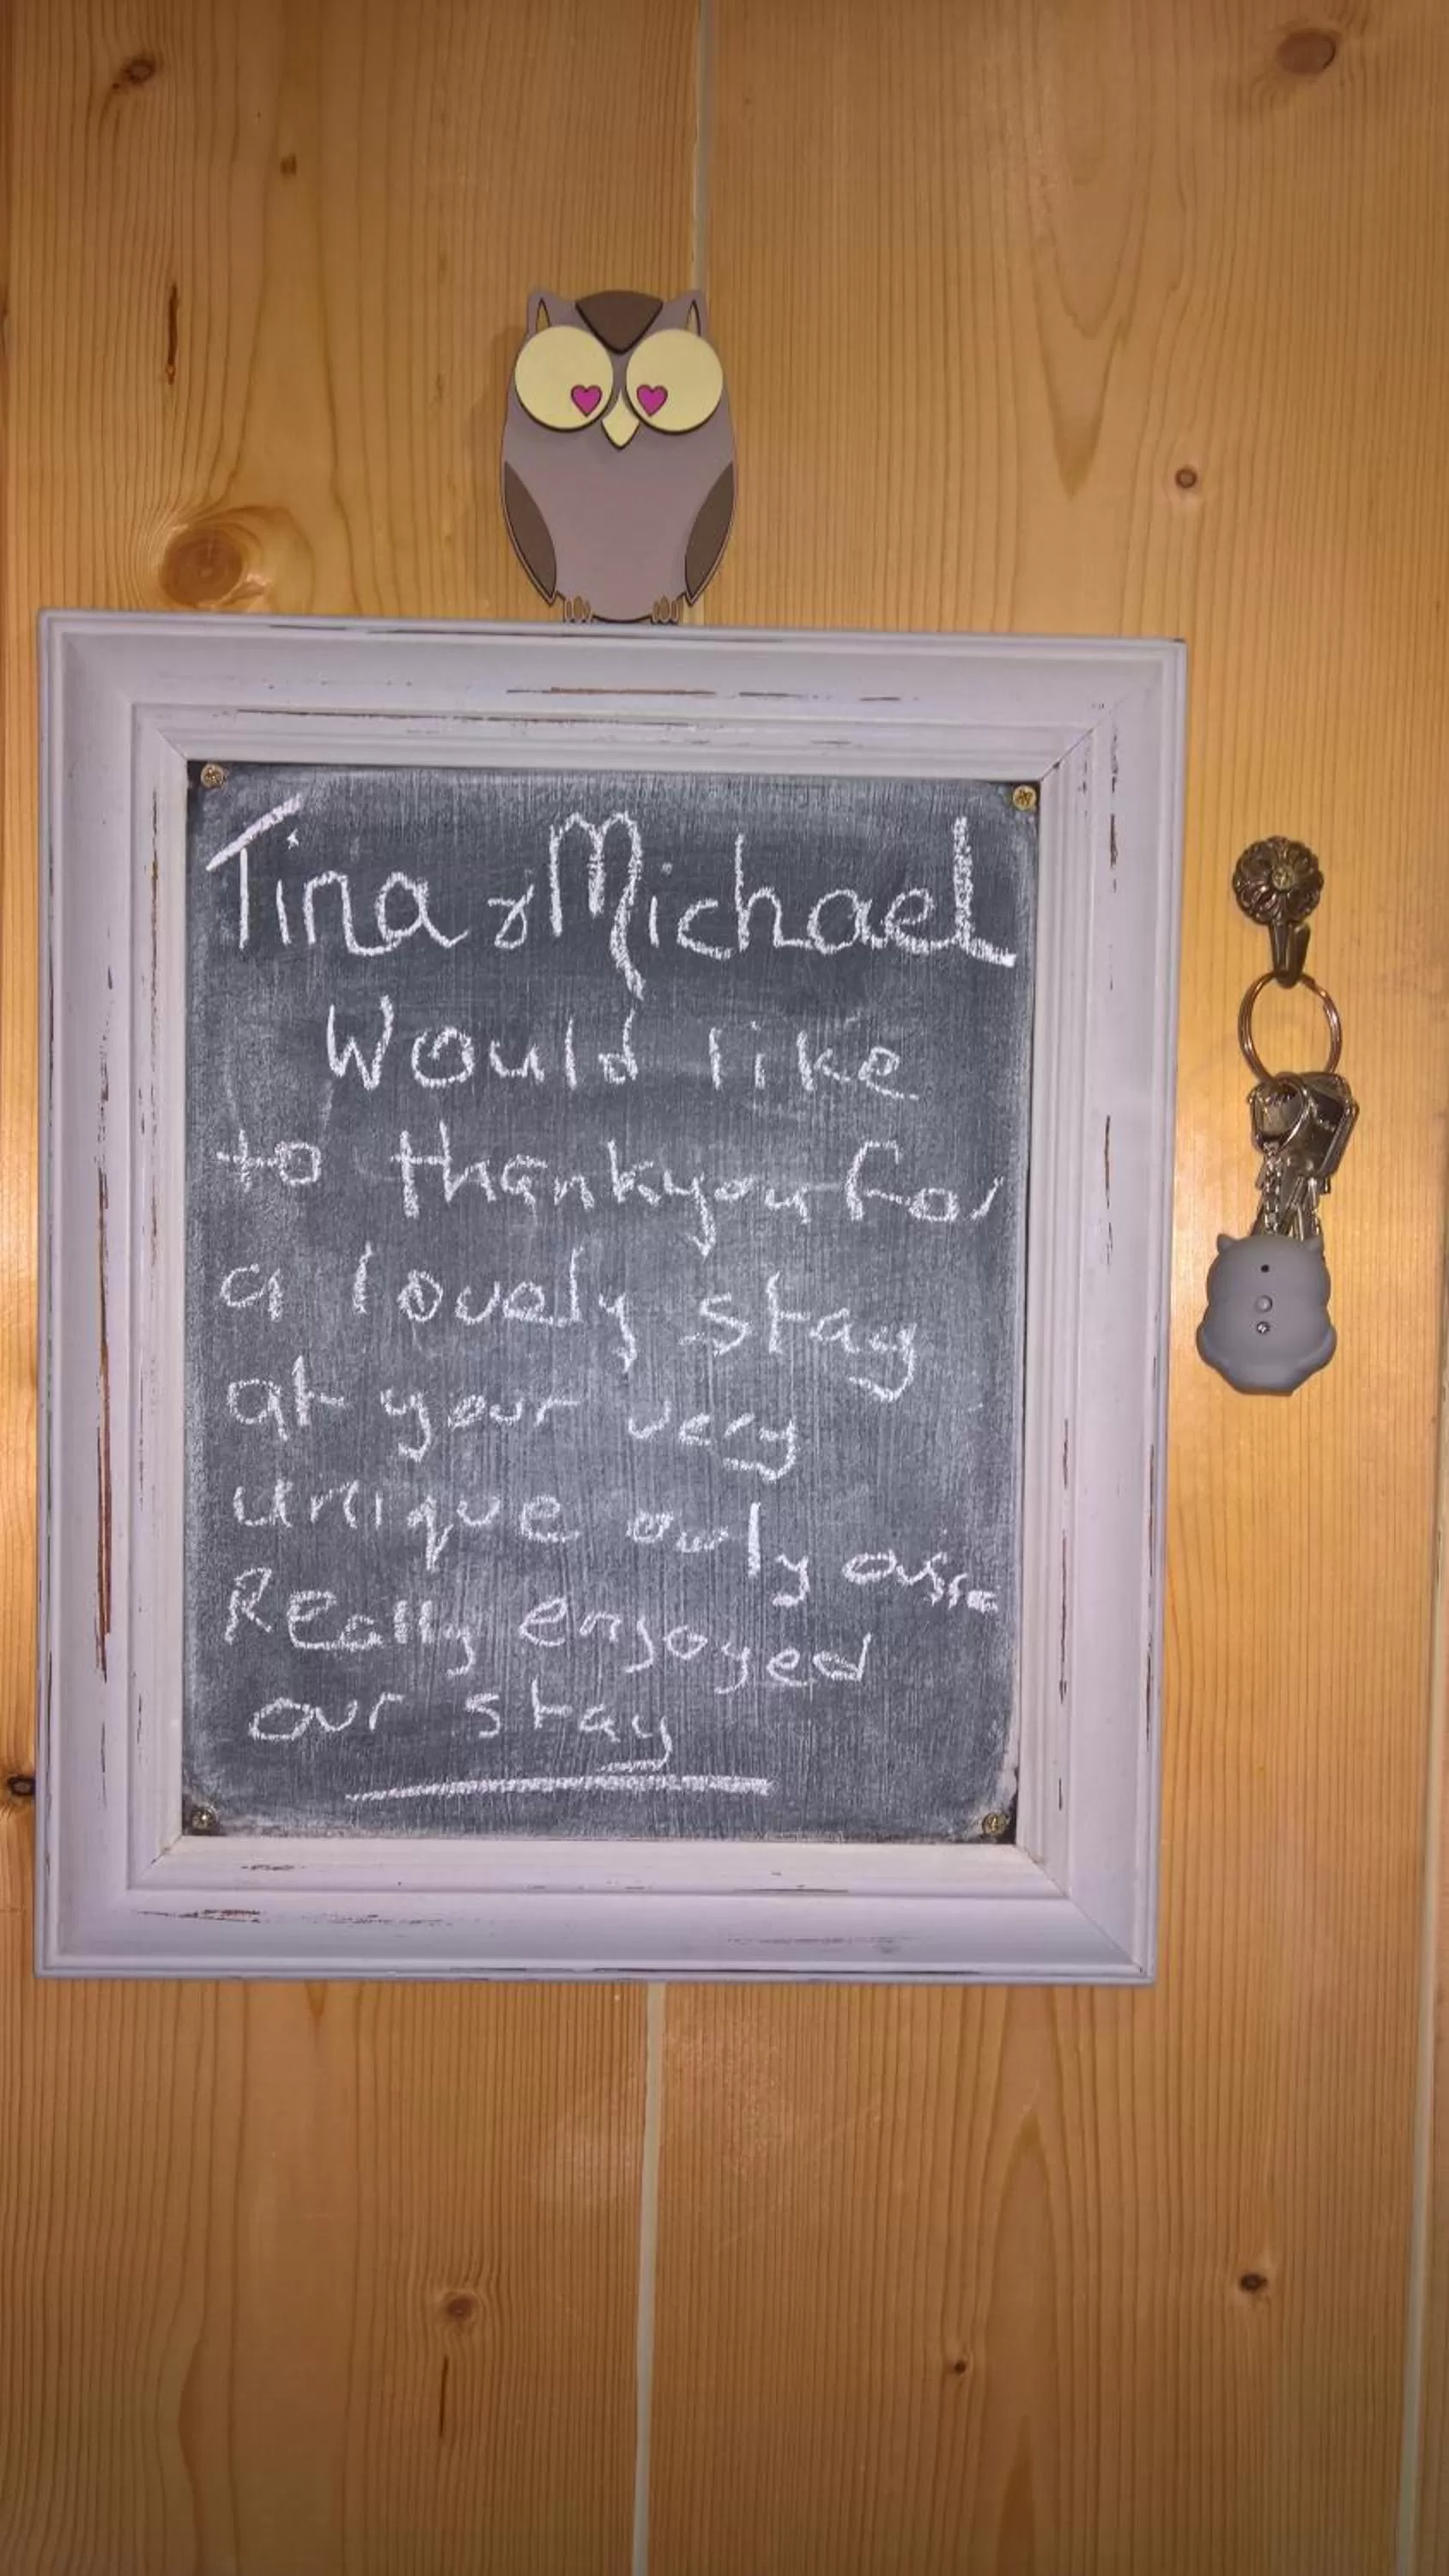 Tina & Michael
Would like
to thankyou for
a lovely stay
at your very
unique owly
Really enjoyed
our stay